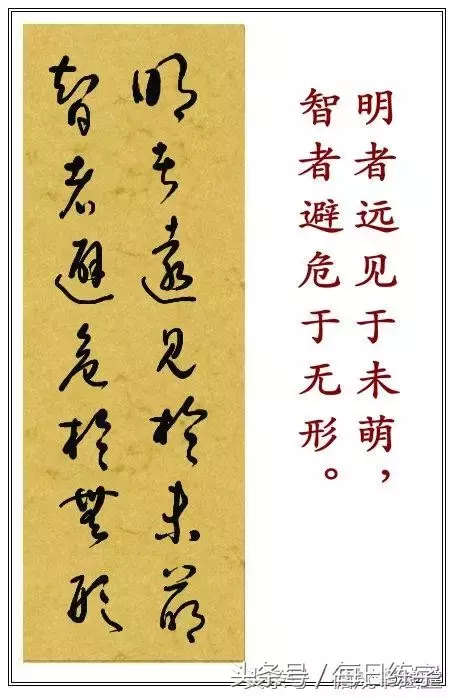 明者遠見於未萌
智者避危於無形
明者远见于未萌，
智者避危于无形。
头条号/每日练字